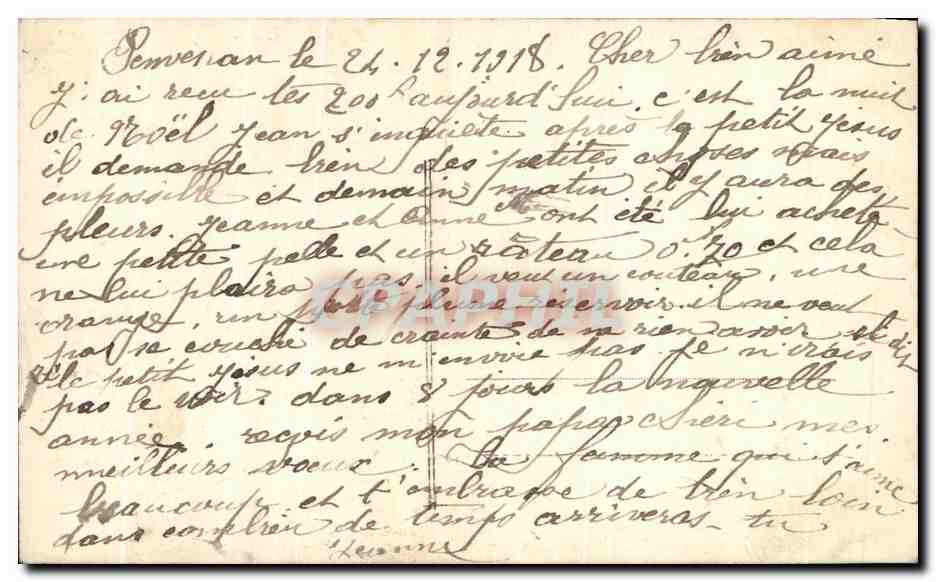 Penvenan le 24.12.1918. Cher bien aimé
j'ai recu tes 200f aujourd'hui. c'est la nuit
de Noël Jean s'inquiete après le petit jesus
il demande bien des petites choses mais
impossible et demain matin il y aura des
pleurs. Jeanne et Anne ont été lui acheté
une petite pelle et un râteau 0f70 et cela
ne lui plaira pas, il veut un couteau, une
orange, un porte plume reservoir. il ne veut
pas se couché de crainte de ne rien avoir et dit
si le petit jesus ne m'envoie pas je n'irais
pas le voir. dans 8 jours la nouvelle
année. reçois mon papa chéri mes
meilleurs voeux. ta femme qui t'aime
beaucoup et t'embrasse de bien loin
dans combien de temps arriveras-tu
Jeanne
CPAPHIL